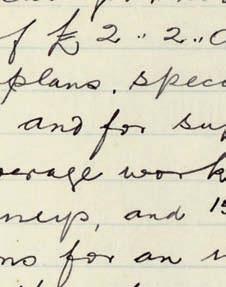 of £ 2 .. 2 .. 0
plans, spec
and for sup
verage work
and 15
ns for an